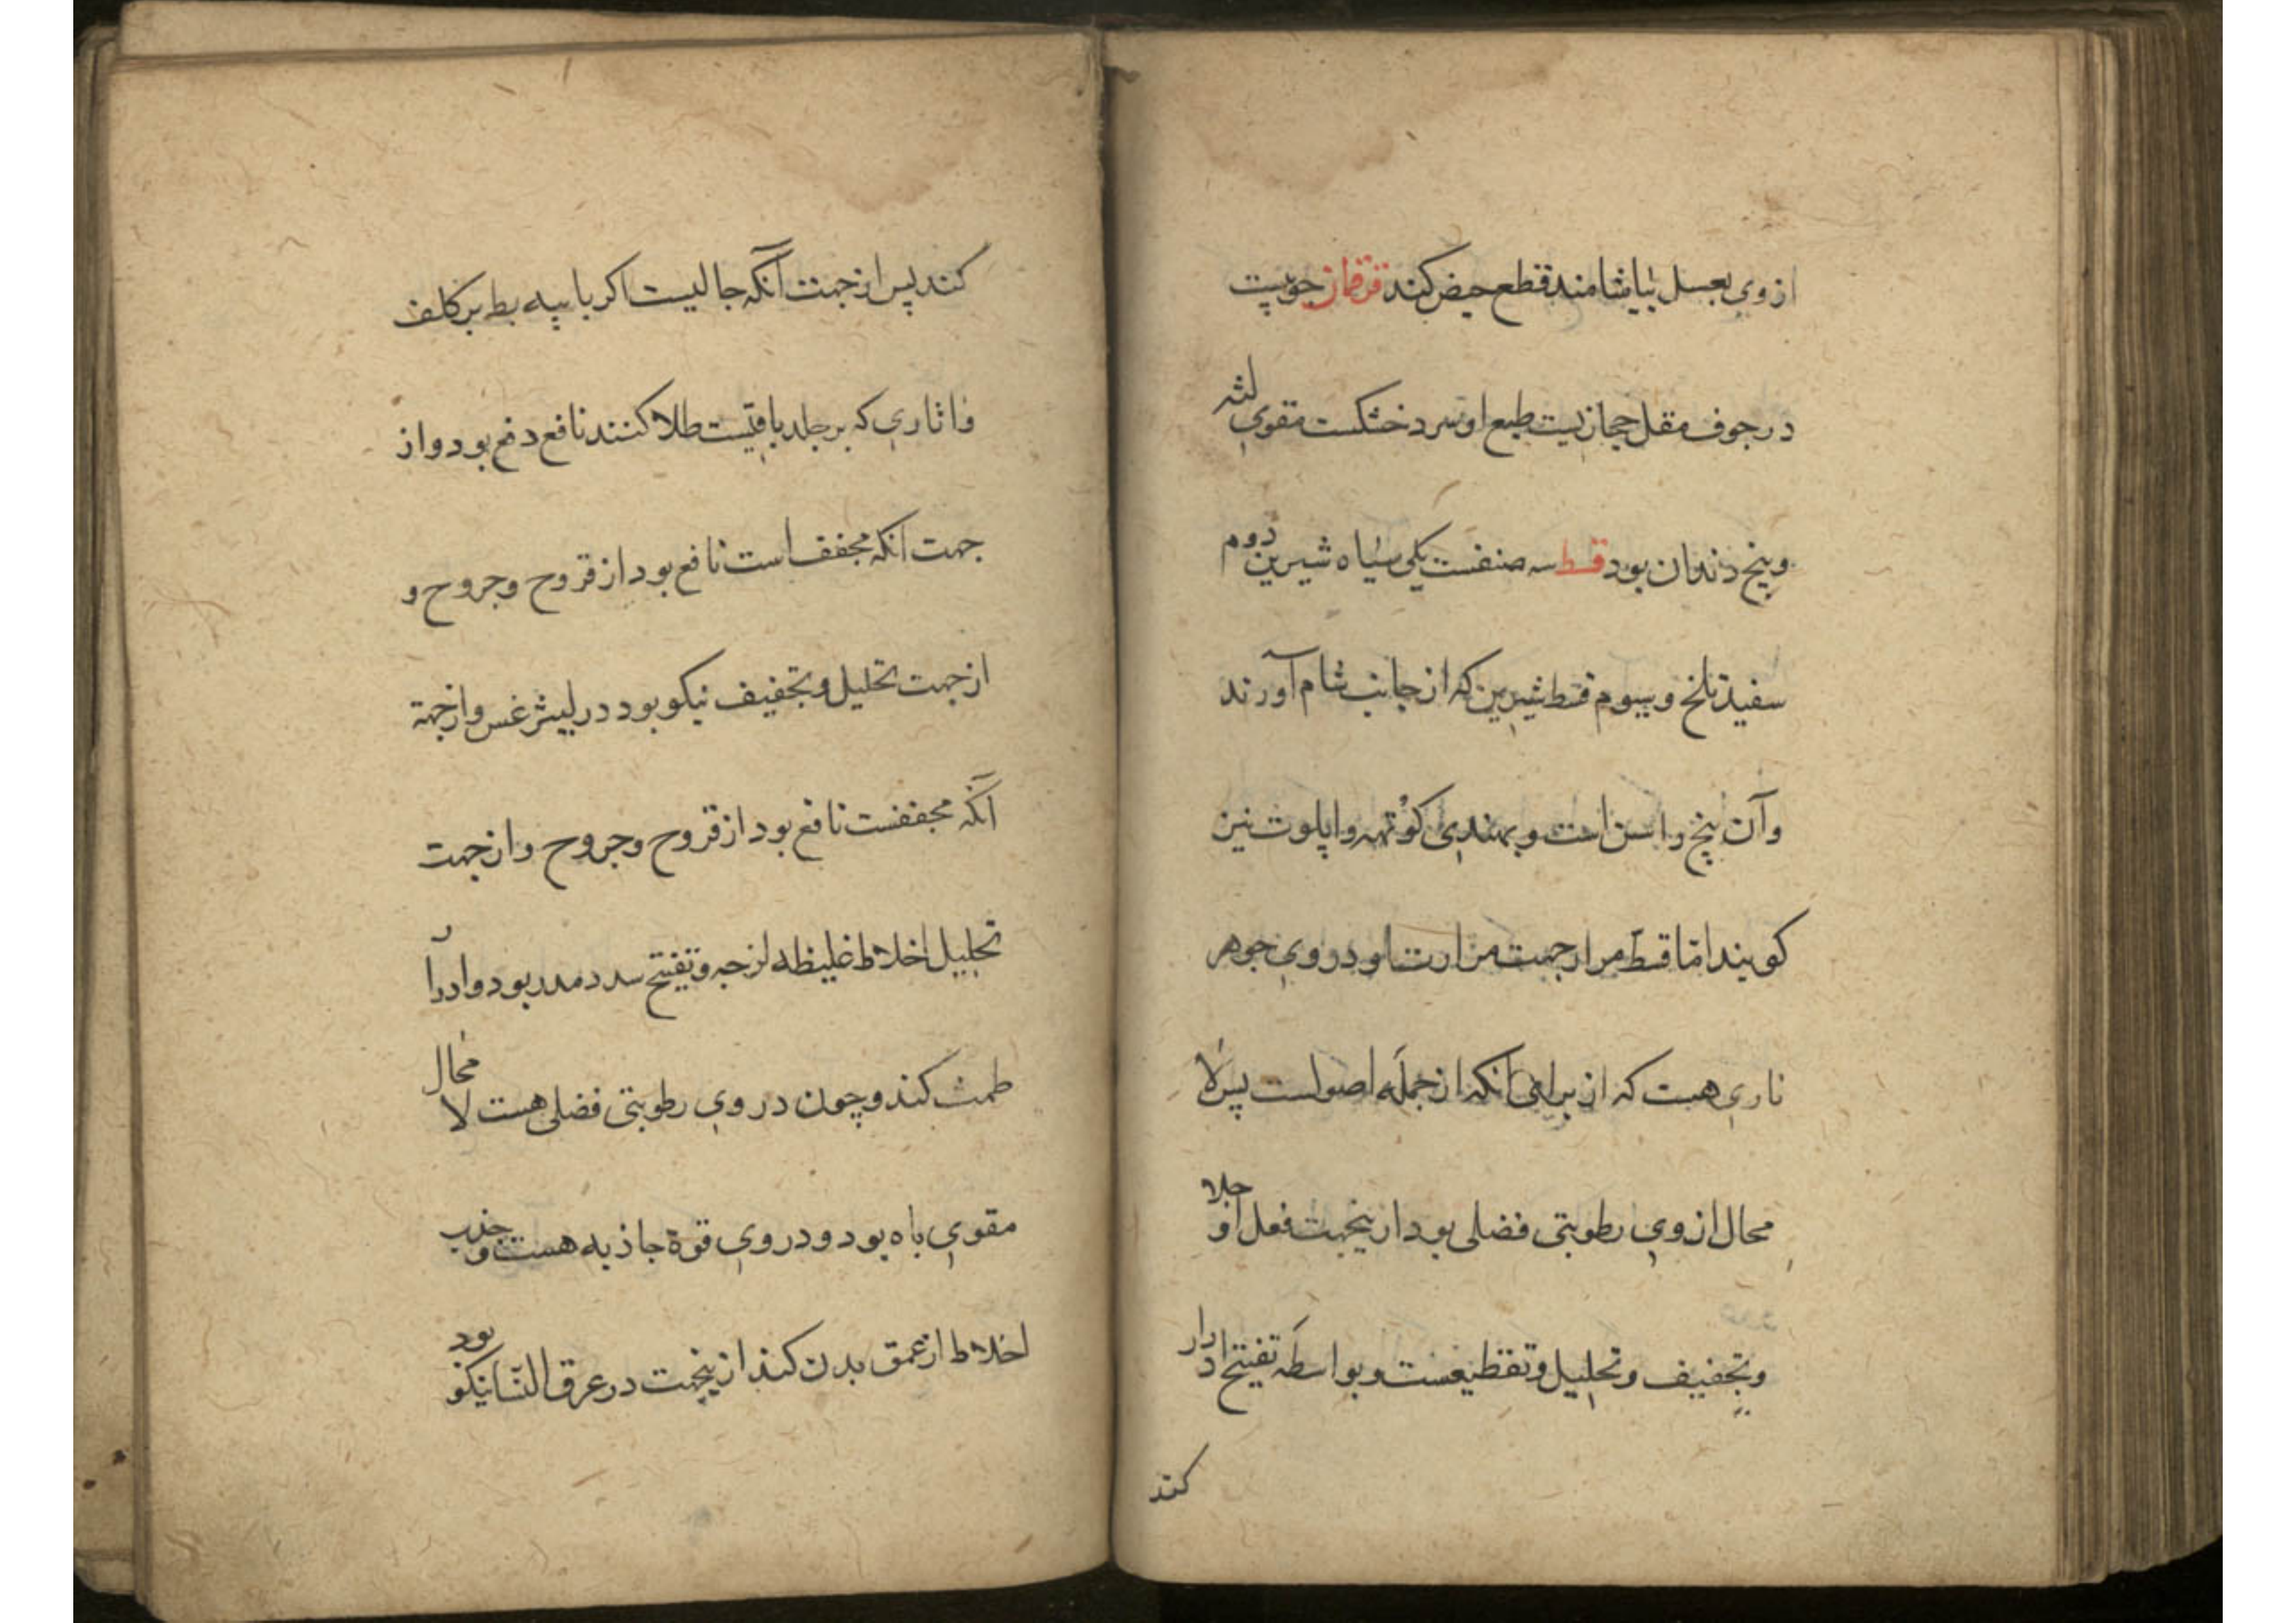 ازوی بعسل بیاشامند قطع حیض کند قرقمان چوبیست
در جوف مقل حجازیست طبع او سرد خشکست مقوی لثه
و بیخ دندان بود قسط سه صنفست یکی سیاه شیرین دوم
سفید تلخ و سیوم قسط شیرین که از جانب شام آورند
و آن بیخ راسن است و بهندی کوتهه و اپلوت نیز
کویند اما قسط مر از جهت مرارت او در وی جوهر
ناری هست که از برای آنکه از جمله اصولست پس لا
محال از وی رطوبتی فضلی بود ازینجهت فعل او جلا
و تجفیف و تحلیل و تقطیعست و بواسطه تفتیح ادرار
کند
کند پس از جهت آنکه جالیست اکر با پیه بط بر کلف
و اثاری که بر جلد باقیست طلا کنند نافع دفع بود و از
جهت آنکه مجفف است نافع بود از قروح و جروح و
از جهت تحلیل و تجفیف نیکو بود در لیثرغس و از جهة
آنکه مجففست نافع بود از قروح و جروح و از جهت
تحلیل اخلاط غلیظه لزجه و تفتیح سدد مدر بود و ادرار
طمث کند و چون در وی رطوبتی فضلی هست لا محال
مقوی باه بود و در وی قوة جاذبه هست و جذب
اخلاط از عمق بدن کند ازینجهت در عرق النسا نیکو بود